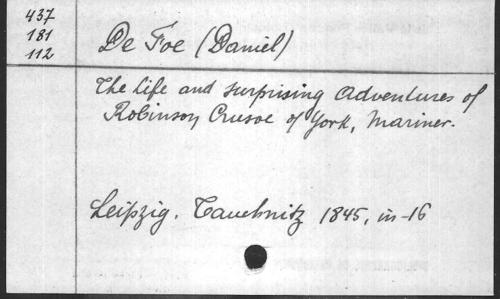 437
181
112
De Foe (Daniel)
The Life and surprising adventures of
Robinson Crusoe of York, mariner.
Leipzig. Tauchnitz 1845, in-16